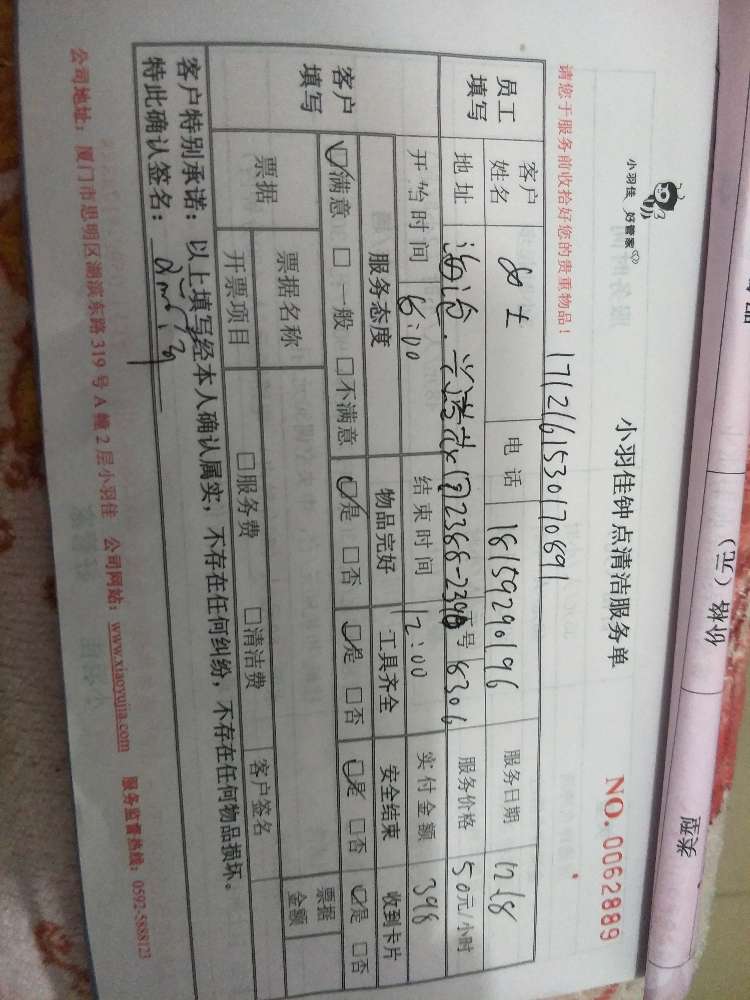 小羽佳 好管家
小羽佳钟点清洁服务单
NO. 0062889
请您于服务前收拾好您的贵重物品！
1712161530170891
员工填写
客户姓名
女士
电话
18159290196
服务日期
12.18
地址
海沧.
2388-2390号 8306
服务价格
50元/小时
开始时间
结束时间
12:00
实付金额
398
客户填写
服务态度
物品完好
工具齐全
安全结束
收到卡片
☑满意 □一般 □不满意
☑是 □否
☑是 □否
☑是 □否
☑是 □否
票据
票据名称
票据金额
开票项目
□服务费 □清洁费
客户签名
客户特别承诺：以上填写经本人确认属实，不存在任何纠纷，不存在任何物品损坏。
特此确认签名：
公司地址：厦门市思明区湖滨东路 319 号 A 幢 2 层小羽佳 公司网站：www.xiaoyujia.com 服务监督热线：0592-5888123
价（元）